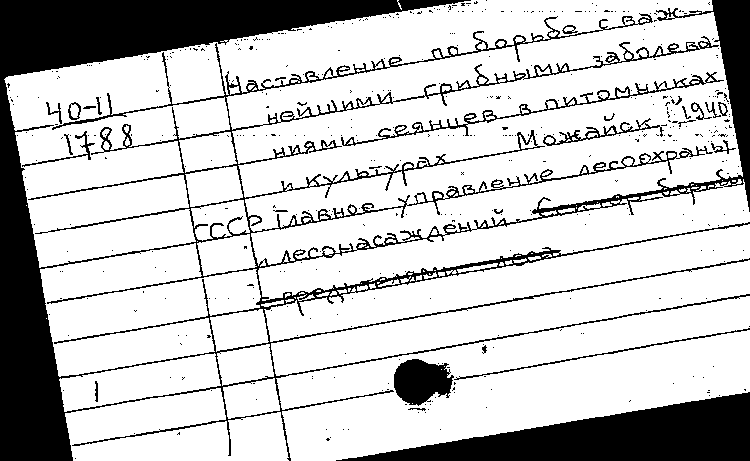 40-11
1788
Наставление по борьбе с важ-
нейшими грибными заболева-
ниями сеянцев в питомниках
и культурах Можайск, [1940]
СССР Главное управление лесоохраны
и лесонасаждений. Сектор борьбы
с вредителями леса
1